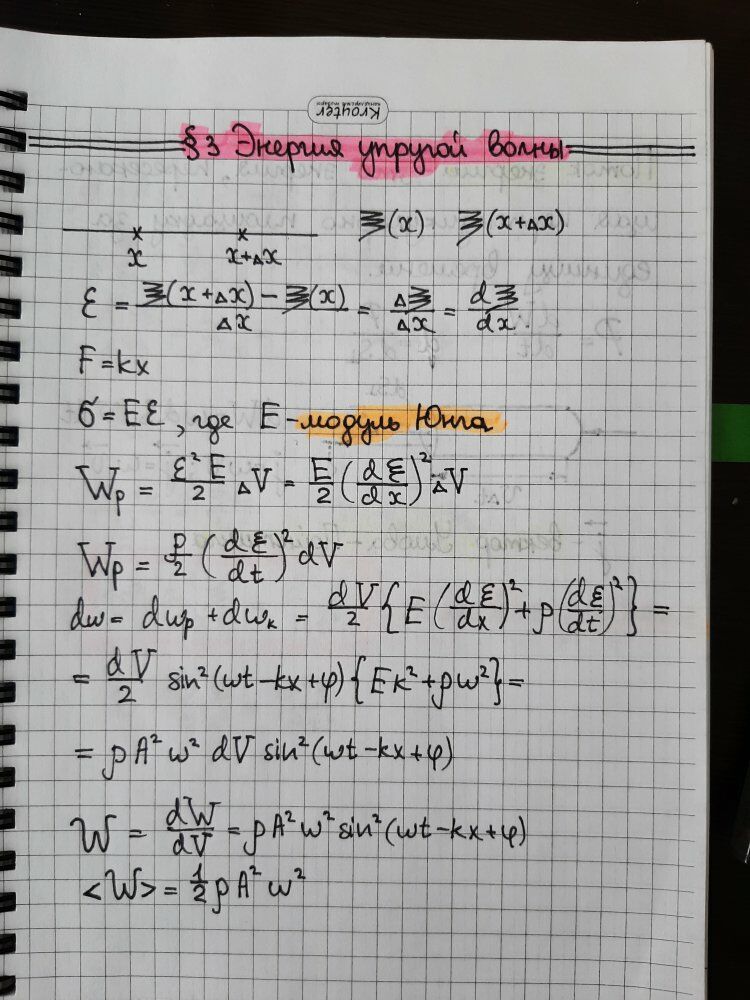 Kroyter
§3 Энергия упругой волны
ξ(x) ξ(x+Δx)
x x+Δx
ε = ξ(x+Δx) − ξ(x) / Δx = Δξ/Δx = dξ/dx.
F = kx
σ = Eε, где E - модуль Юнга
Wp = ε²E/2 ΔV = E/2 (dξ/dx)² ΔV
Wp = ρ/2 (dξ/dt)² dV
dw = dwp + dwк = dV/2 {E(dξ/dx)² + ρ(dξ/dt)²} =
= dV/2 sin²(wt−kx+φ) {Eк² + ρw²} =
= ρA²w² dV sin²(wt−kx+φ)
W = dW/dV = ρA²w² sin²(wt−kx+φ)
<W> = 1/2 ρA²w²